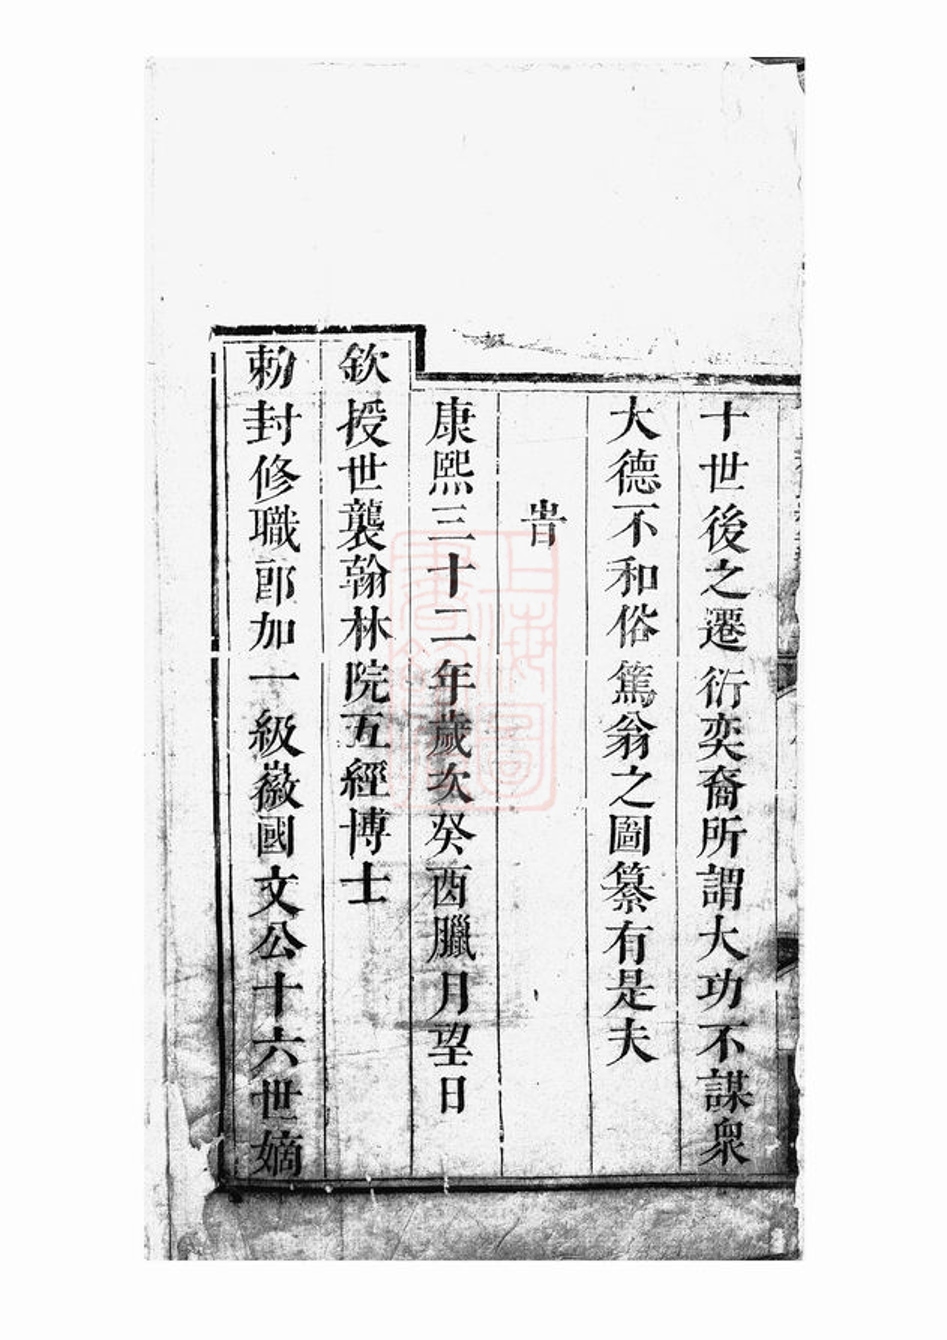 十世後之遷衍奕裔所謂大功不謀衆
大德不和俗篤翁之圖纂有是夫
旹
康熙三十二年歲次癸酉臘月望日
欽授世襲翰林院五經博士
勅封修職郎加一級徽國文公十六世嫡
上海圖書館藏